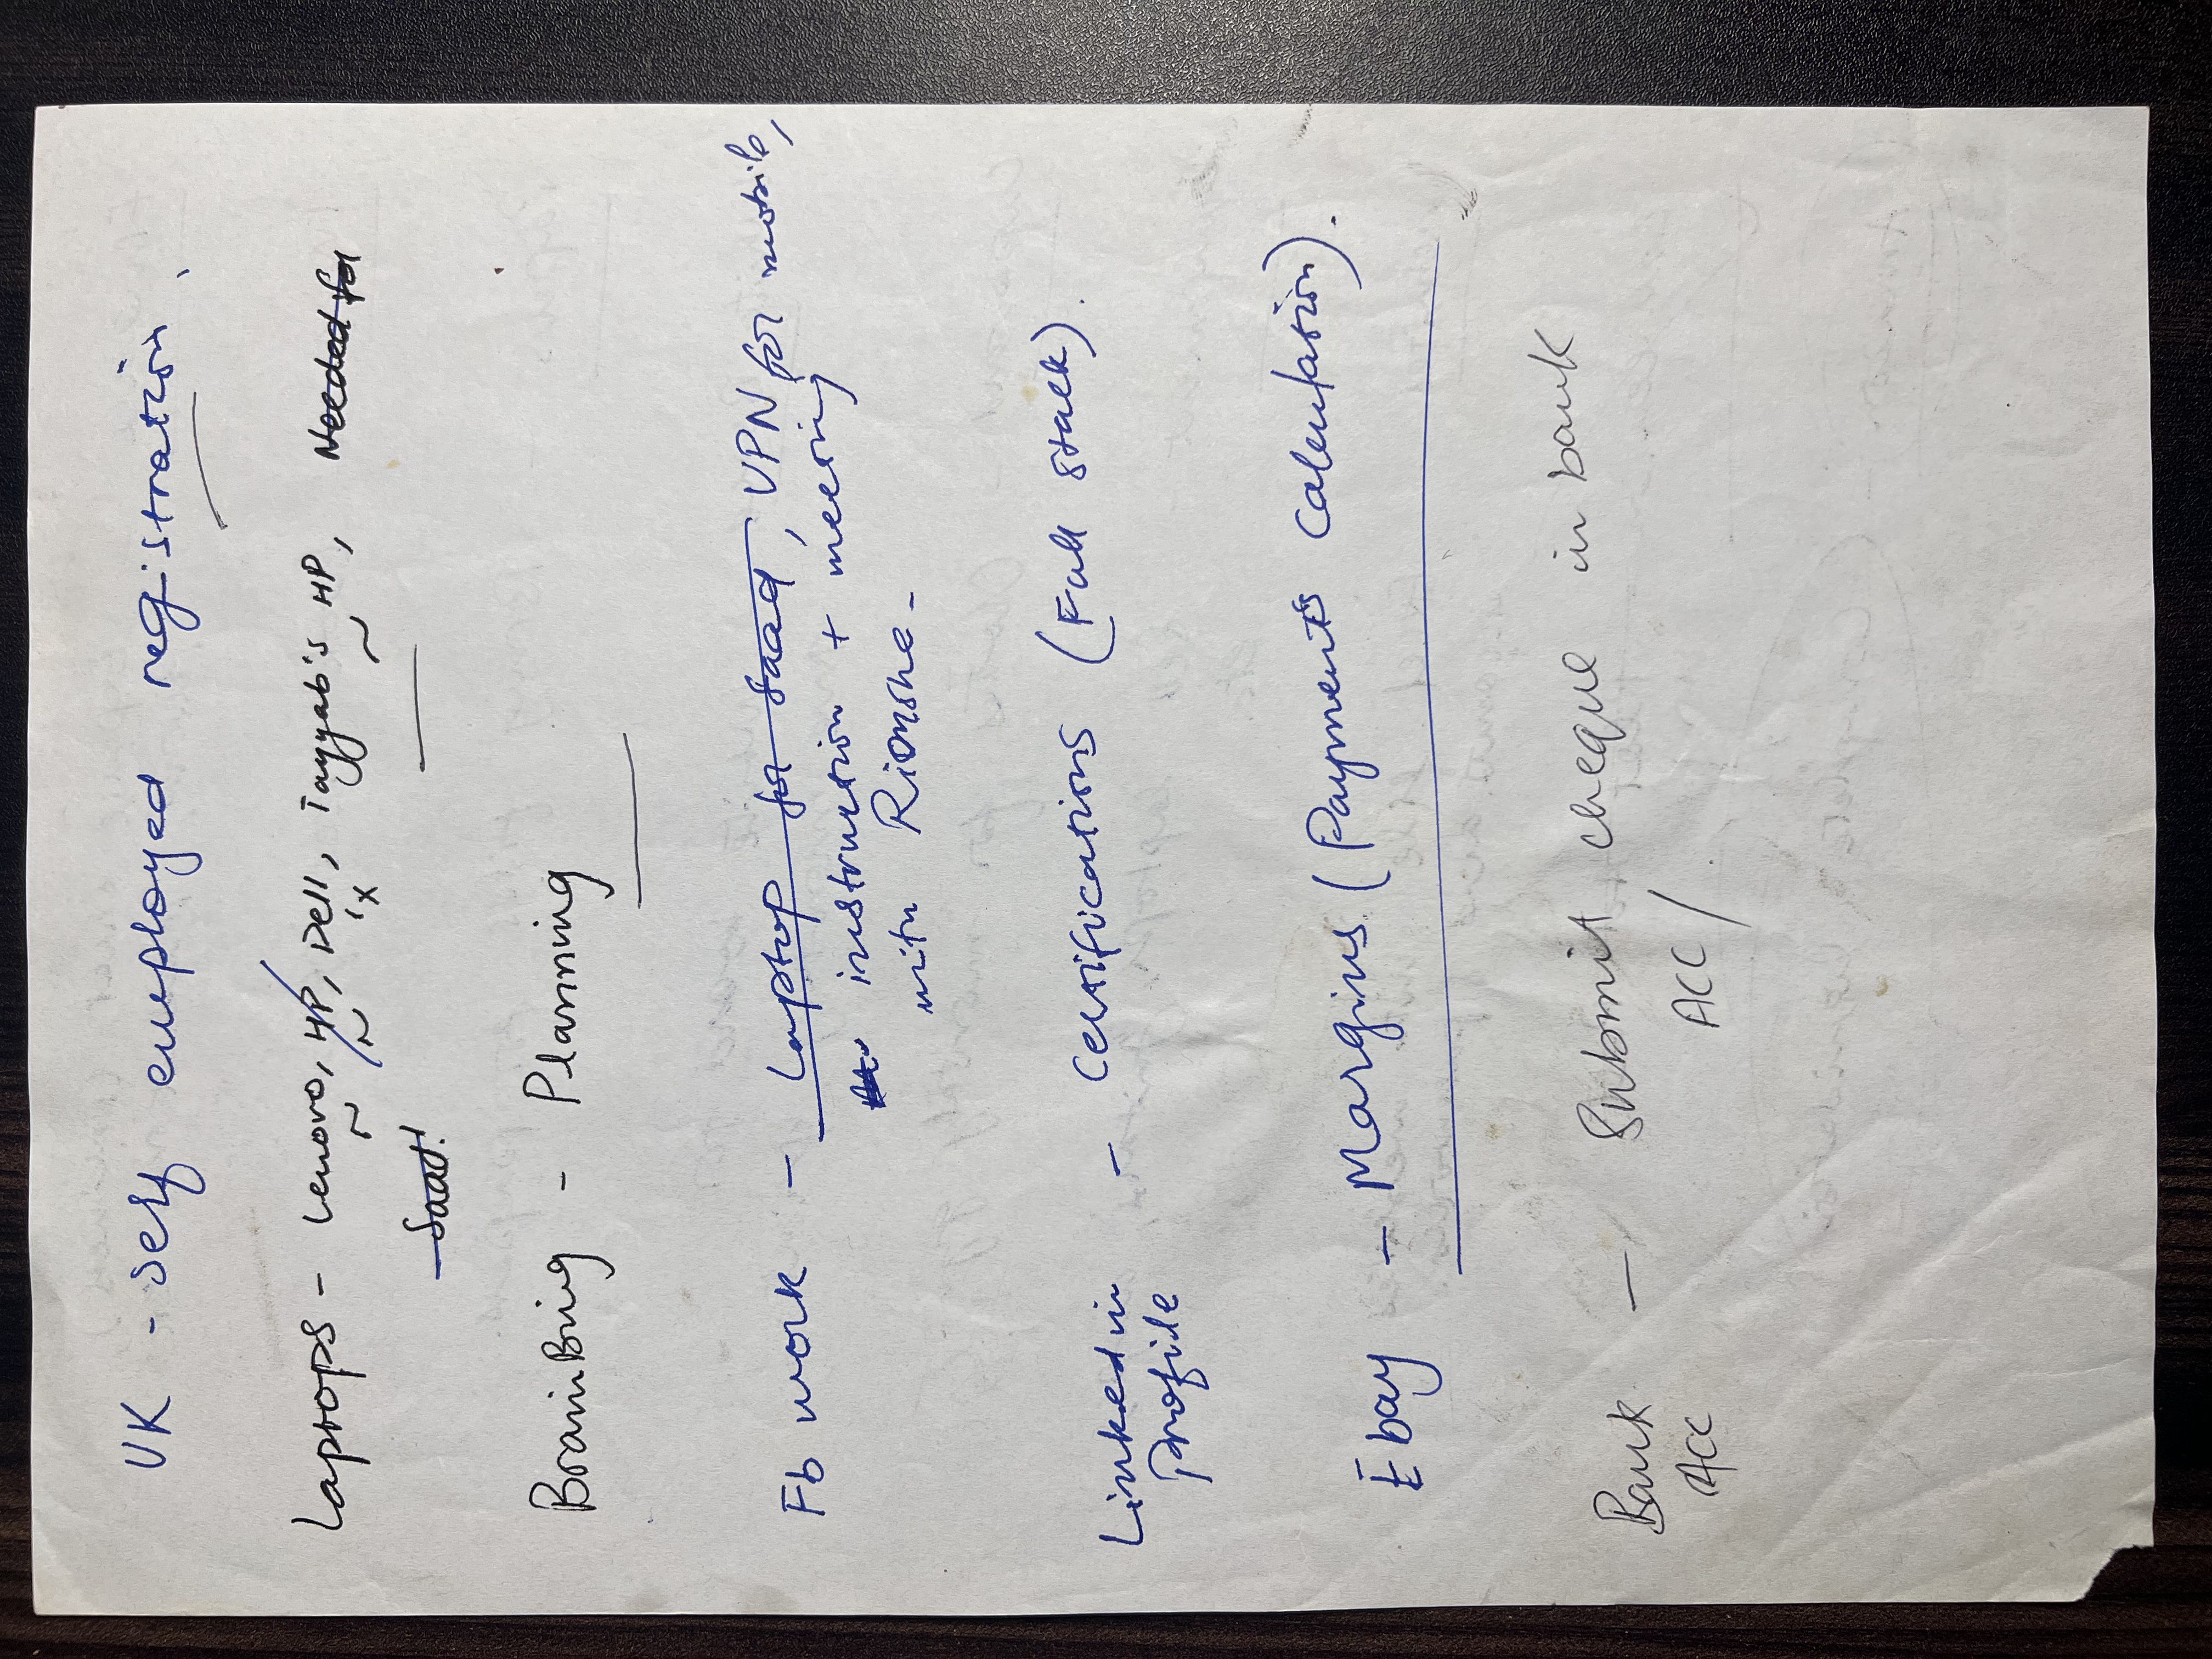 UK - self employed registration.
Laptops - Lenovo, HP, Dell, Tayyab's HP, Needed for
Saad!
BrainBing - Planning
Fb work - Laptop for Saad, VPN for mobile,
instruction + meeting
with Rionsha.
Linked in - Certifications (Full stack).
Profile
Ebay - Margins (Payments Calculation).
Bank - Submit cheque in bank
Acc Acc